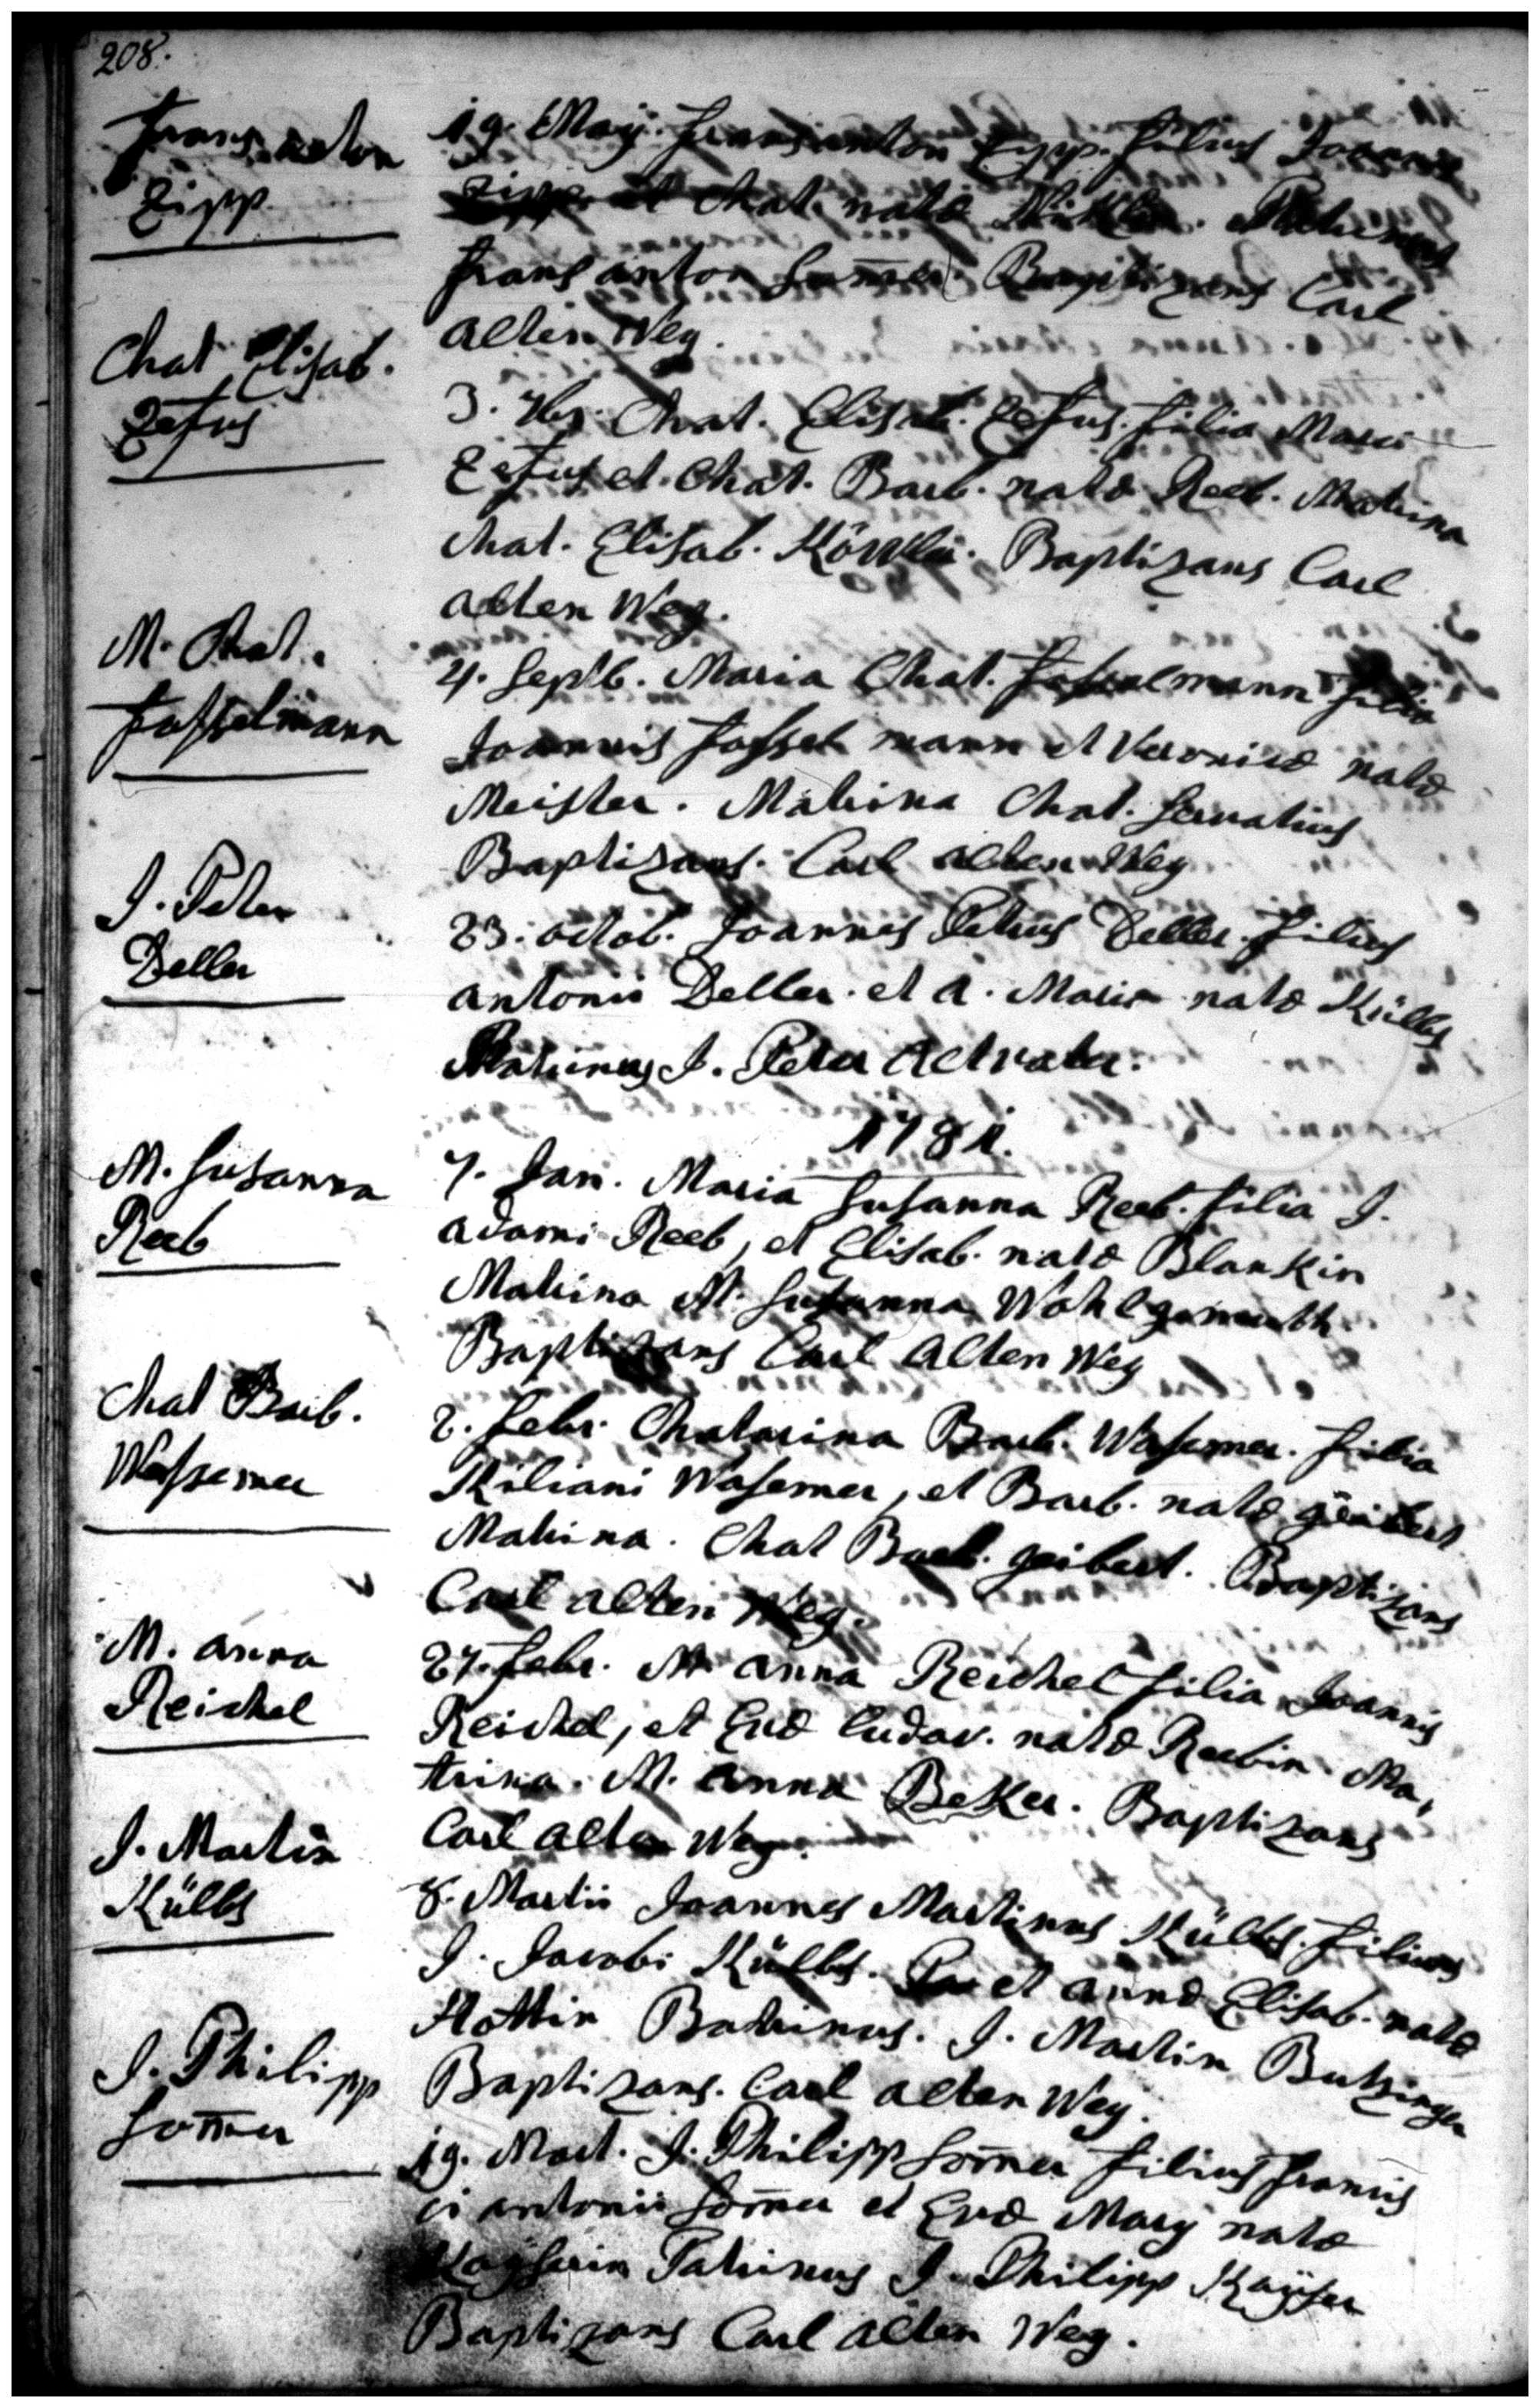 208.
Frans anton
Zipp
19. Maij. Frans anton Zipp. Filius Joannis
Zipp et Chat. natæ Patrinus
Frans anton Som̄er Baptizans Carl
alten Weg.
Chat Elisab.
Zefus
3. 7br. Chat. Elisab. Zefus. Filia Marci
Zefus et. Chat. Barb. natæ Reeb. Matrina
Chat. Elisab. Baptizans Carl
alten Weg.
M. Chat.
Fasselmann
4. Septb. Maria Chat. Fasselmann Filia
Joannis Fassel mann et Veronicæ natæ
Meister. Matrina Chat. Servatius
Baptizans. Carl alten Weg
J. Peter
Deller
23. octob. Joannes Petrus Deller. Filius
antonii Deller. et a. Maria natæ Külbs
Patrinus J. Peter
1781.
M. Susanna
Reeb
7. Jan. Maria Susanna Reeb. Filia J.
adami Reeb, et Elisab. natæ Blankin
Matrina M. Susanna Wohlgemuth
Baptizans Carl Alten Weg
Chat Barb.
Wassemer
2. Febr. Chatarina Barb. Wasemer. Filia
Kiliani Wasemer, et Barb. natæ geibert
Matrina. Chat Barb. geibert. Baptizans
Carl alten Weg.
M. anna
Reichel
27. Febr. M. anna Reichel Filia Joannis
Reichel, et Evæ Ludov. natæ Reebin. Ma,
trina. M. anna Beker. Baptizans
Carl alten Weg.
J. Martin
Külbs
8. Martii Joannes Martinus Külbs. Filius
J. Jacobi Külbs. et annæ Elisab. natæ
Hottin Patrinus. J. Martin Butzinger
Baptizans. Carl alten Weg.
J. Philipp
Som̄er
19. Mart. J. Philipp Som̄er Filius Francis
ci antonii Som̄er et Evæ Mary natæ
Kaÿserin Patrinus J. Philipp Kaÿser
Baptizans Carl alten Weg.